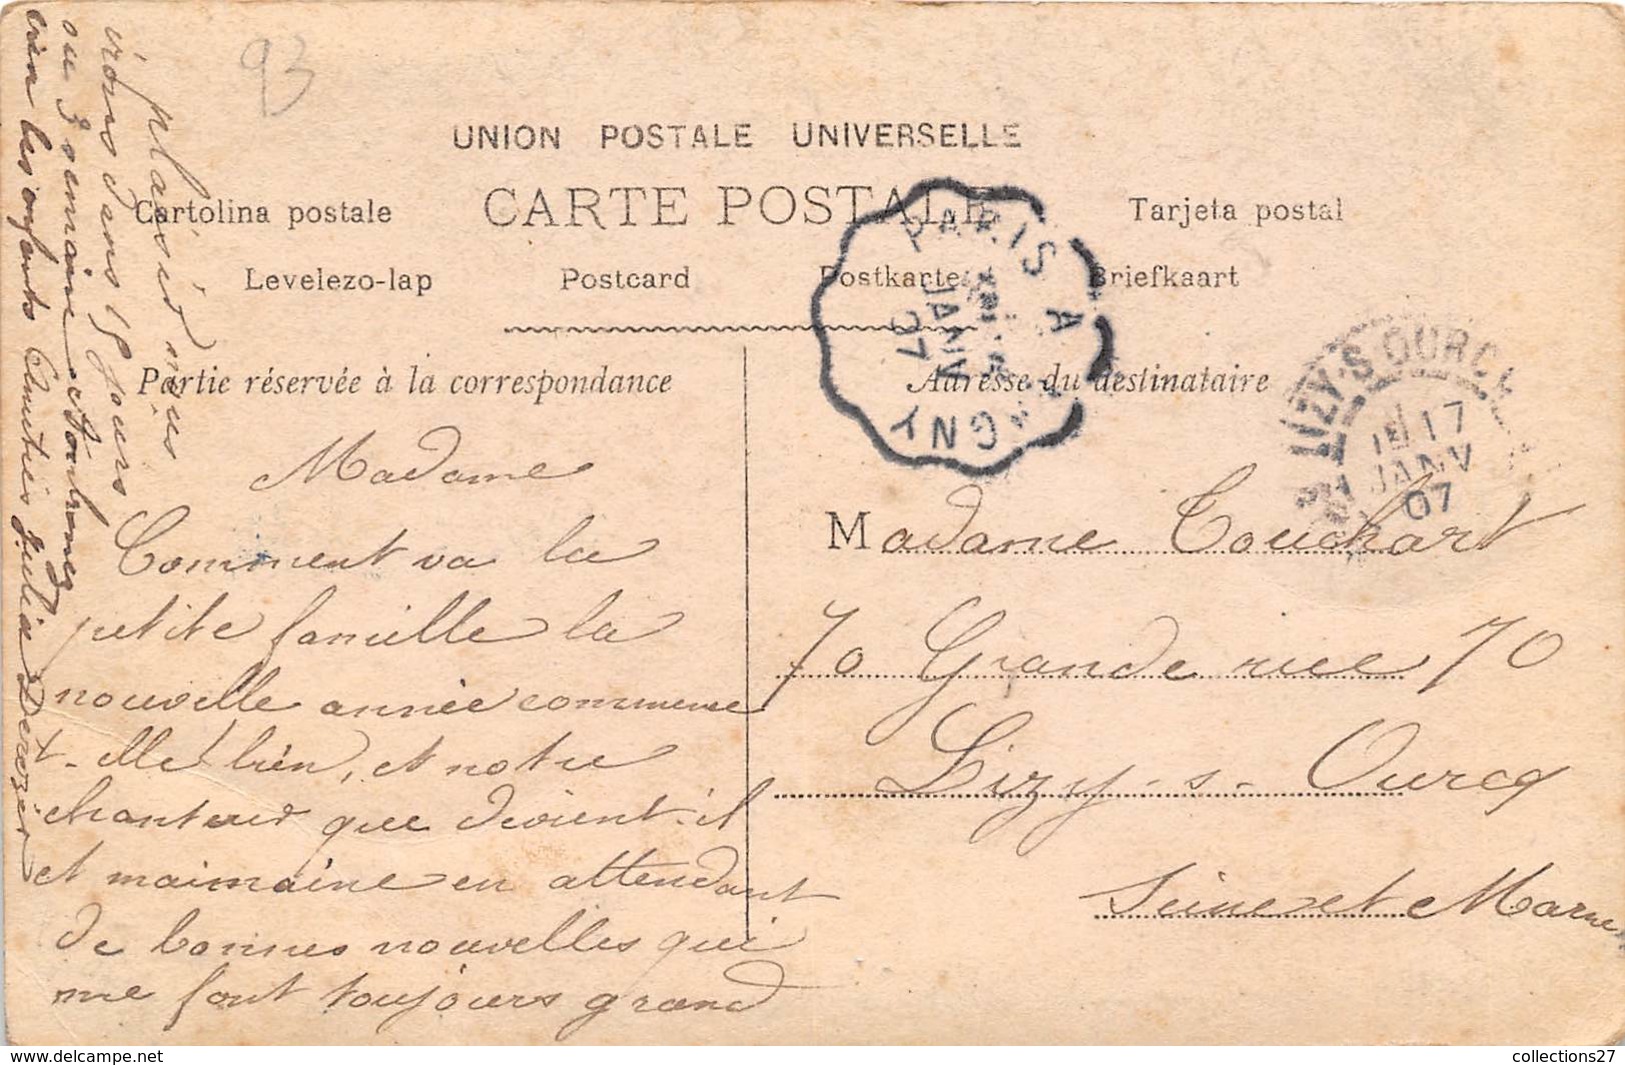 93
UNION POSTALE UNIVERSELLE
CARTE POSTALE
Cartolina postale
Tarjeta postal
Levelezo-lap
Postcard
Postkarte
Briefkaart
Partie réservée à la correspondance
Adresse du destinataire
PARIS A
JANV
07
GNY
LIZY-S-OURCQ
17
JANV
07
Madame
Comment va la
petite famille la
nouvelle année commence
t-elle bien, et notre
chanteur que devient-il
et maimaine en attendant
de bonnes nouvelles qui
me font toujours grand
plaisir
irons dans 15 jours
ou 3 semaine
les enfants Amitiés Julia Derozier
Madame Couchart
70 Grande rue 70
Lizy-s-Ourcq
Seine et Marne
delcampe.net
collections27